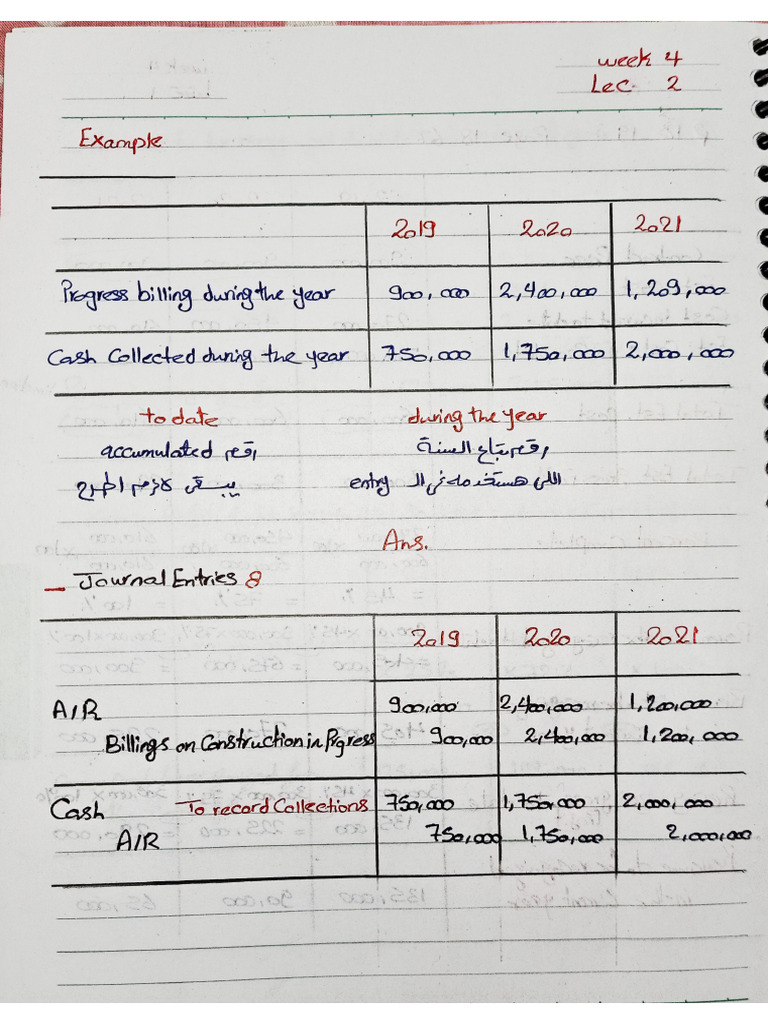 week 4
Lec. 2
Example
2019 2020 2021
Progress billing during the year 900,000 2,400,000 1,209,000
Cash Collected during the year 750,000 1,750,000 2,000,000
to date during the year
رقم accumulated رقم بتاع السنة
يبقى لازم اطرح اللى هستخدمه فى الـ entry
Ans.
_ Journal Entries 8
2019 2020 2021
A/R 900,000 2,400,000 1,200,000
Billings on Construction in Prgress 900,000 2,400,000 1,200,000
Cash To record Collections 750,000 1,750,000 2,000,000
A/R 750,000 1,750,000 2,000,000